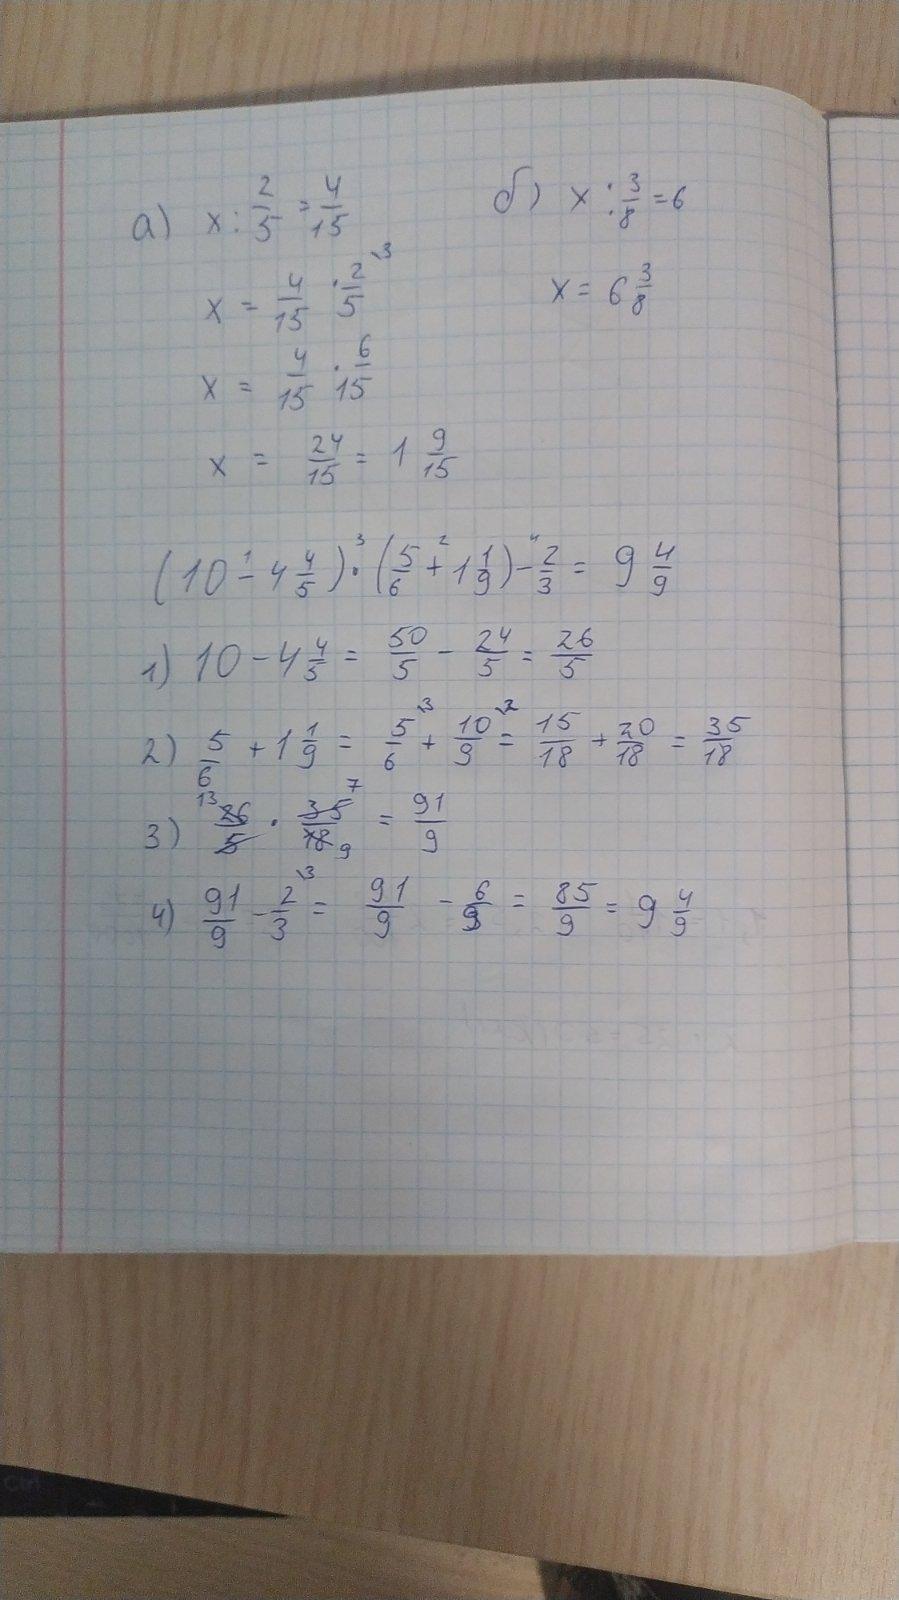 а) x : 2/5 = 4/15
x = 4/15 · 2/5 \3
x = 4/15 · 6/15
x = 24/15 = 1 9/15
б) x : 3/8 = 6
x = 6 3/8
(10 -¹ 4 4/5) ·³ (5/6 +² 1 1/9) -⁴ 2/3 = 9 4/9
1) 10 - 4 4/5 = 50/5 - 24/5 = 26/5
2) 5/6 + 1 1/9 = 5/6 \3 + 10/9 \2 = 15/18 + 20/18 = 35/18
3) 13 26/5 · 35/18 7 9 = 91/9
4) 91/9 - 2/3 \3 = 91/9 - 6/9 = 85/9 = 9 4/9
Ctrl